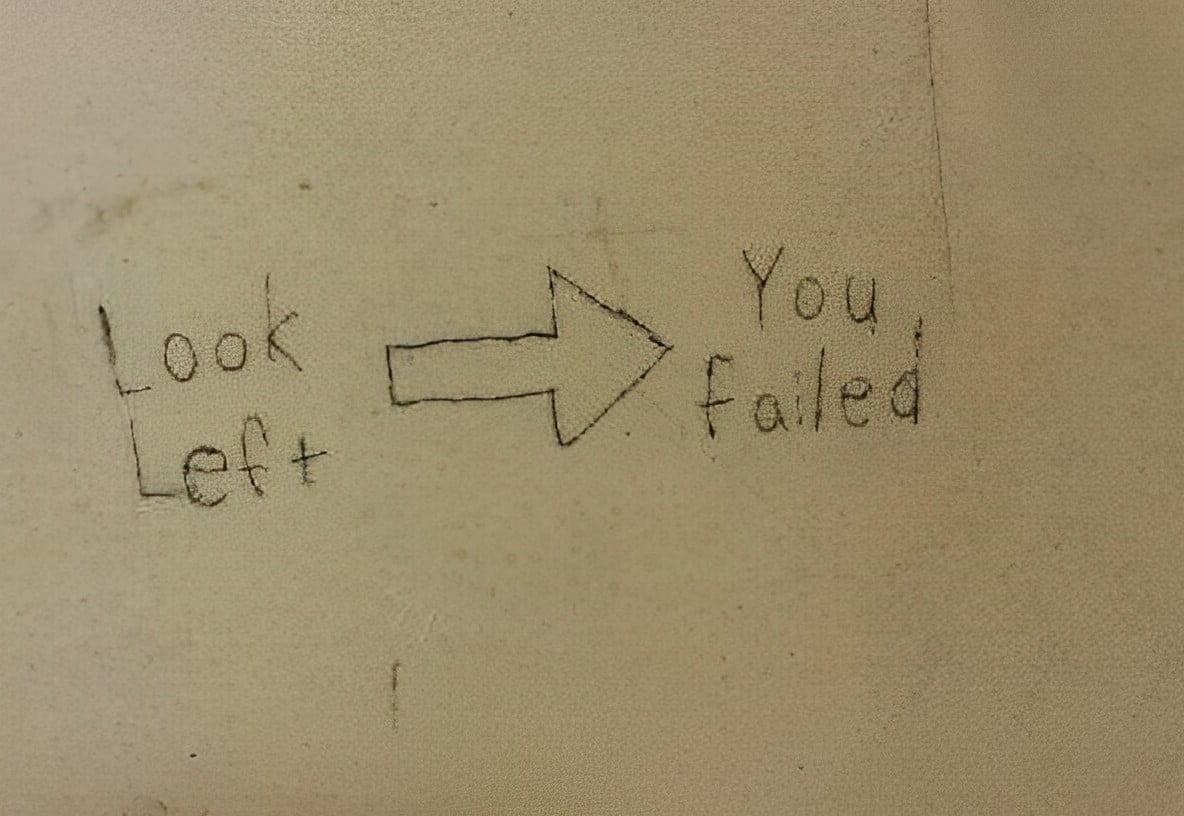 Look
Left
You
failed